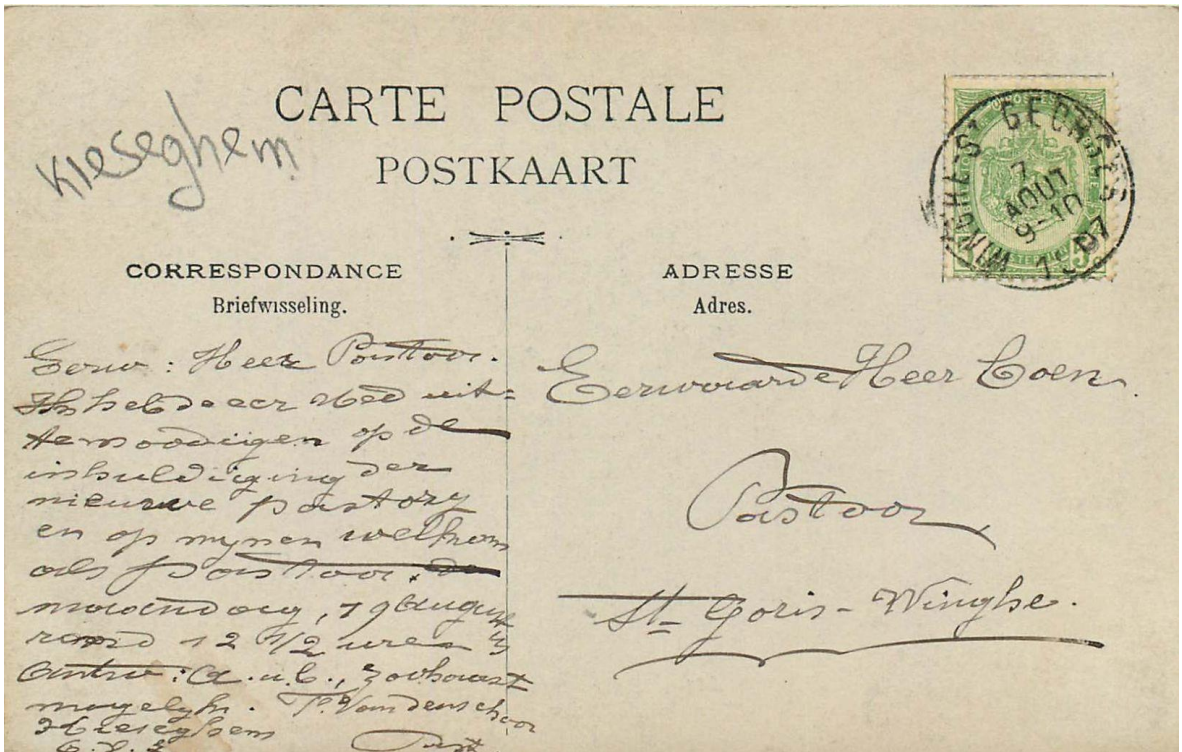 Kieseghem
CARTE POSTALE
POSTKAART
WINGHE-ST GEORGES
7
AOUT
9-10
1907
CORRESPONDANCE
Briefwisseling.
Eerw : Heer Pastoor.
Ik heb de eer UEd uit-
te noodigen op de
inhuldiging der
nieuwe pastory
en op mynen welkom
als pastoor. de
maandag, 19 August
rond 12 1/2 uren
Antw : a.u.b., zoohaast
mogelyk. P. Vandenschoor
Kieseghem Past
6. 8. 7
ADRESSE
Adres.
Eerwaarde Heer Coen
Pastoor
St Goris-Winghe.